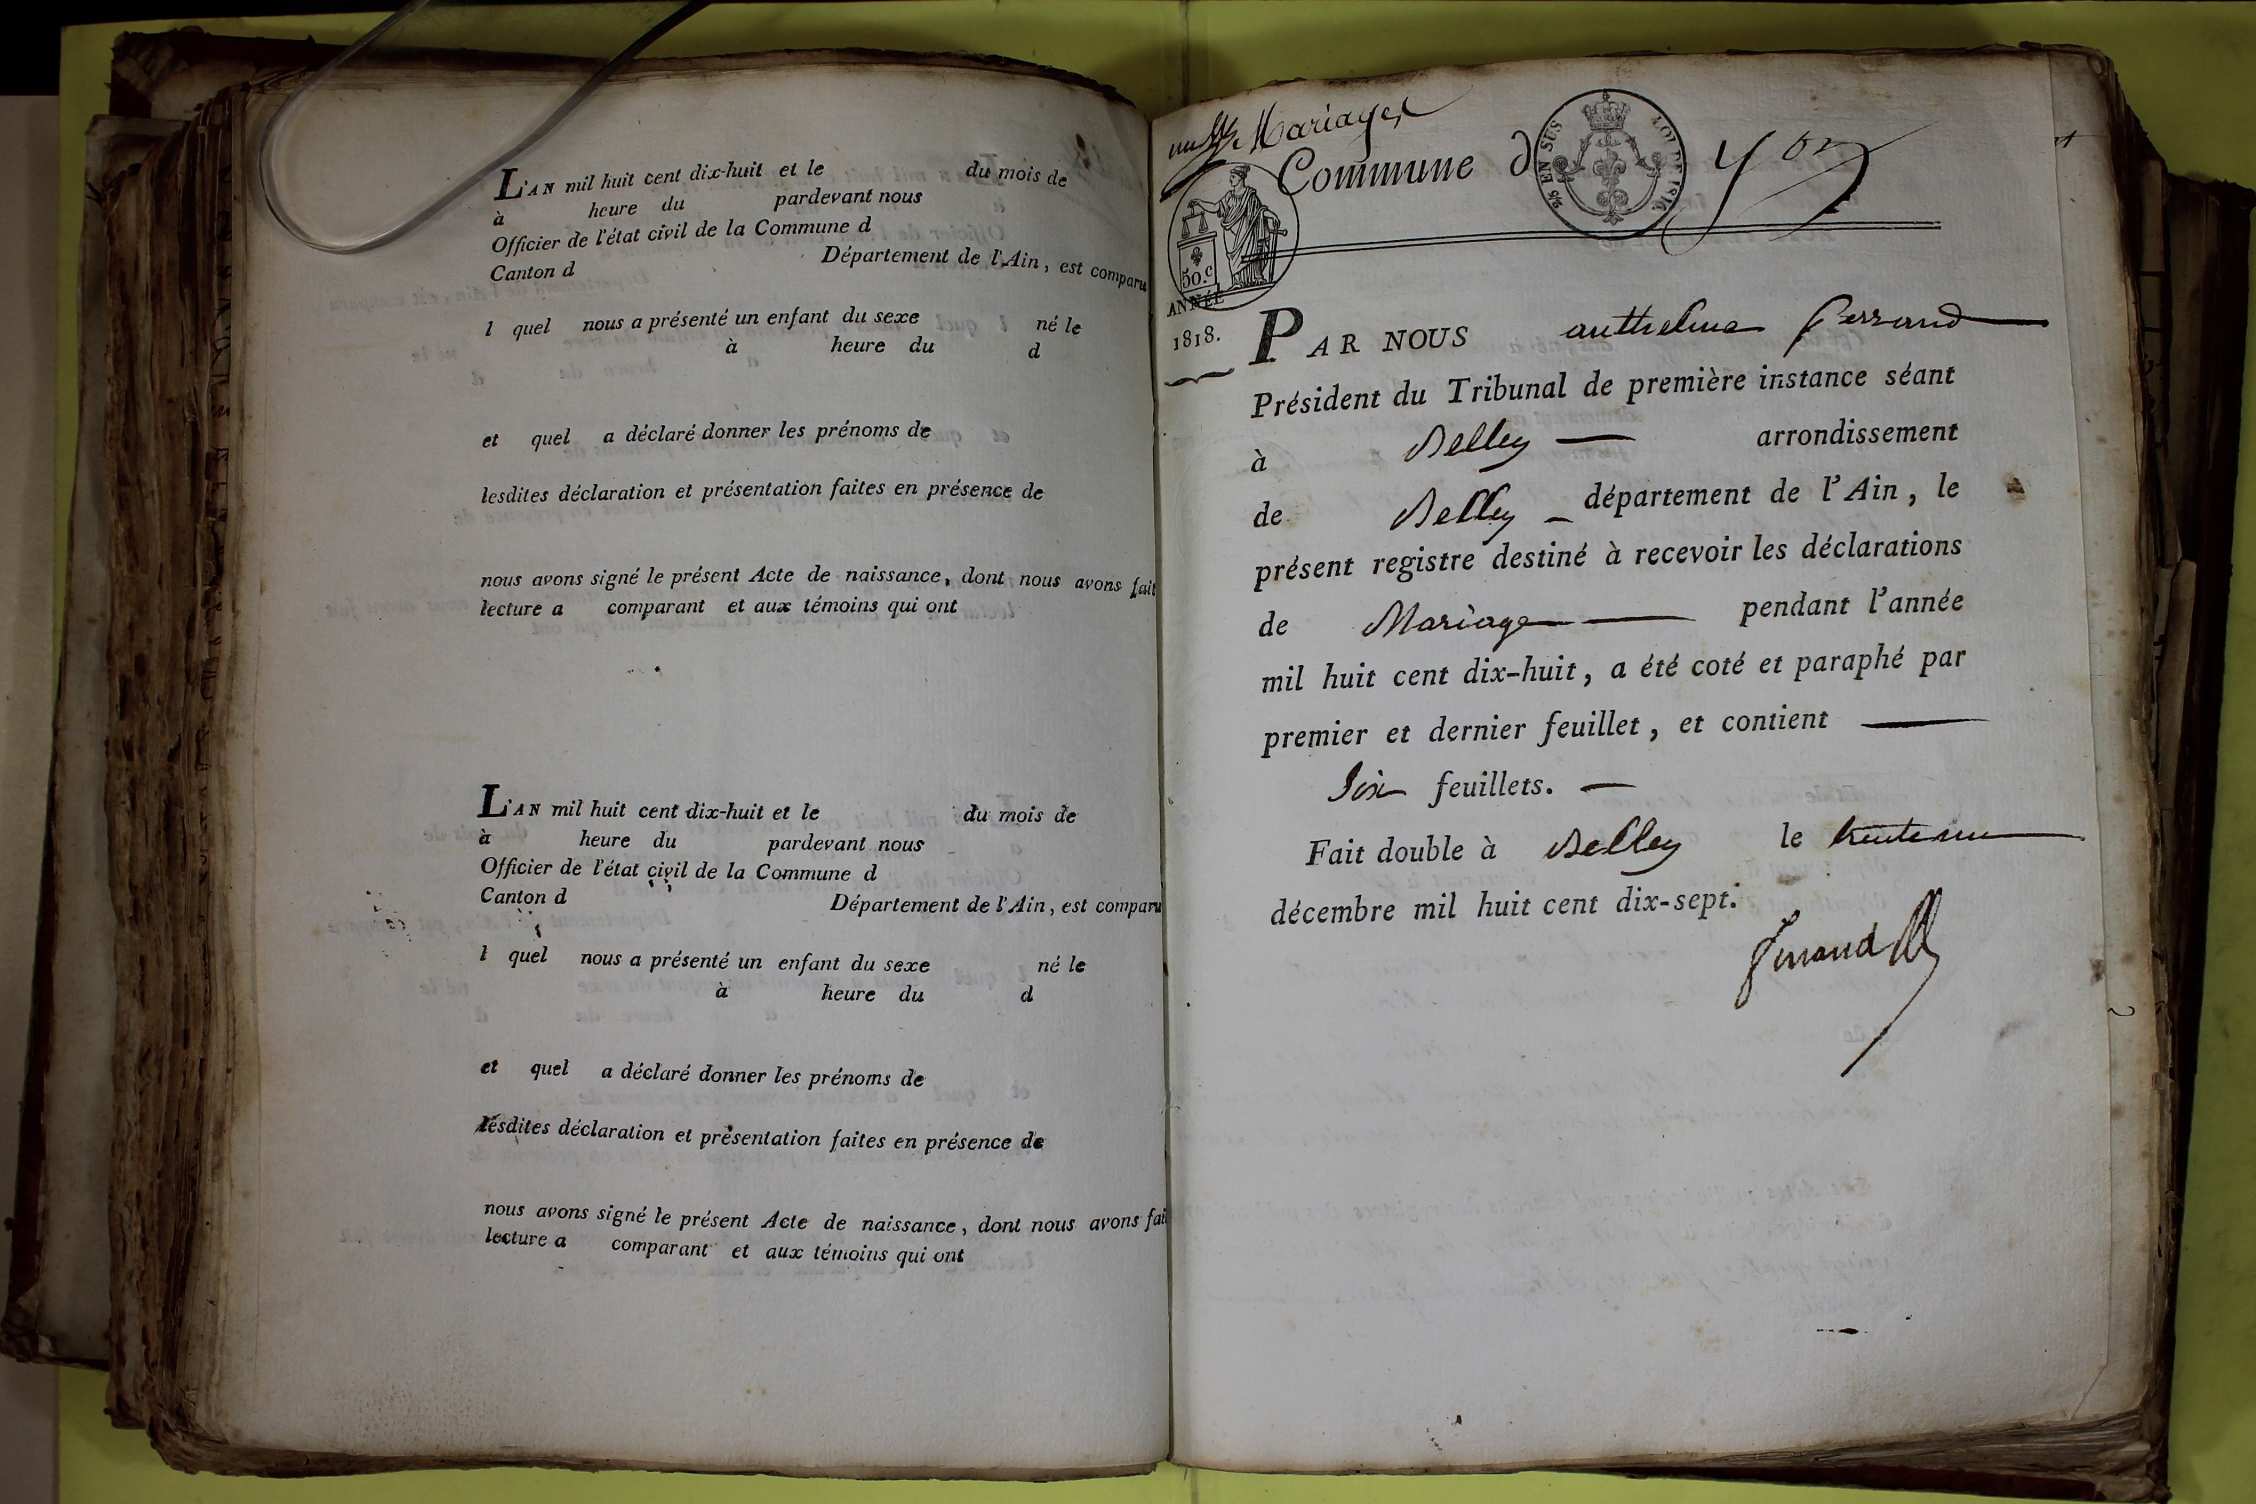 L'AN mil huit cent dix-huit et le du mois de
à heure du pardevant nous
Officier de l'état civil de la Commune d
Canton d Département de l'Ain, est comparu
l quel nous a présenté un enfant du sexe né le
à heure du d
et quel a déclaré donner les prénoms de
lesdites déclaration et présentation faites en présence de
nous avons signé le présent Acte de naissance, dont nous avons fait
lecture a comparant et aux témoins qui ont
L'AN mil huit cent dix-huit et le du mois de
à heure du pardevant nous
Officier de l'état civil de la Commune d
Canton d Département de l'Ain, est comparu
l quel nous a présenté un enfant du sexe né le
à heure du d
et quel a déclaré donner les prénoms de
lesdites déclaration et présentation faites en présence de
nous avons signé le présent Acte de naissance, dont nous avons fait
lecture a comparant et aux témoins qui ont
Mariages
Commune d yon
EN SUS LOI DE 1816
50.c
ANNÉE
1818.
PAR NOUS anthelme ferrand
Président du Tribunal de première instance séant
à Belley arrondissement
de Belley département de l'Ain, le
présent registre destiné à recevoir les déclarations
de Mariage pendant l'année
mil huit cent dix-huit, a été coté et paraphé par
premier et dernier feuillet, et contient
Six feuillets.
Fait double à Belley le trente un
décembre mil huit cent dix-sept.
ferrand